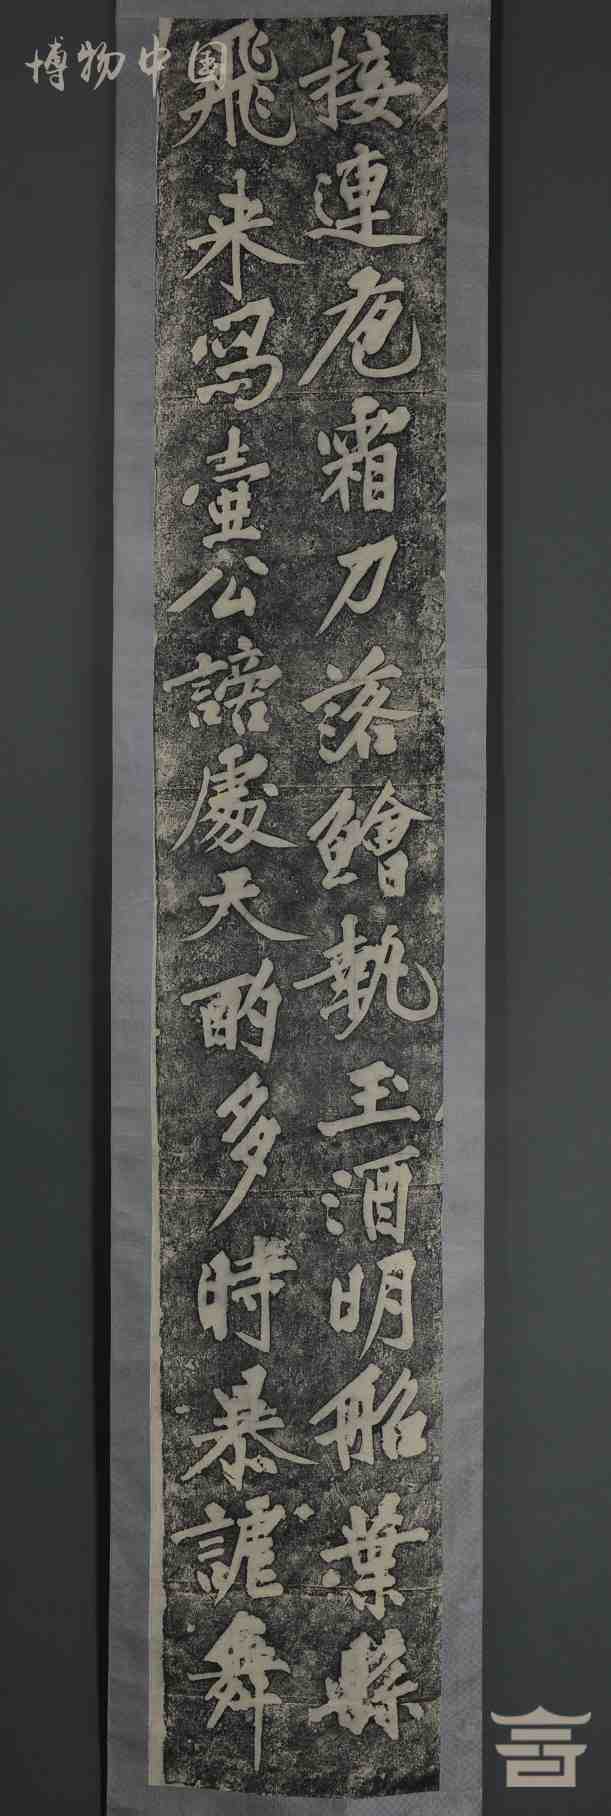 接連危霜刀落鱠執玉酒明船葉縣
飛来舄壺公謗處天酌多時暴謔舞
博物中国